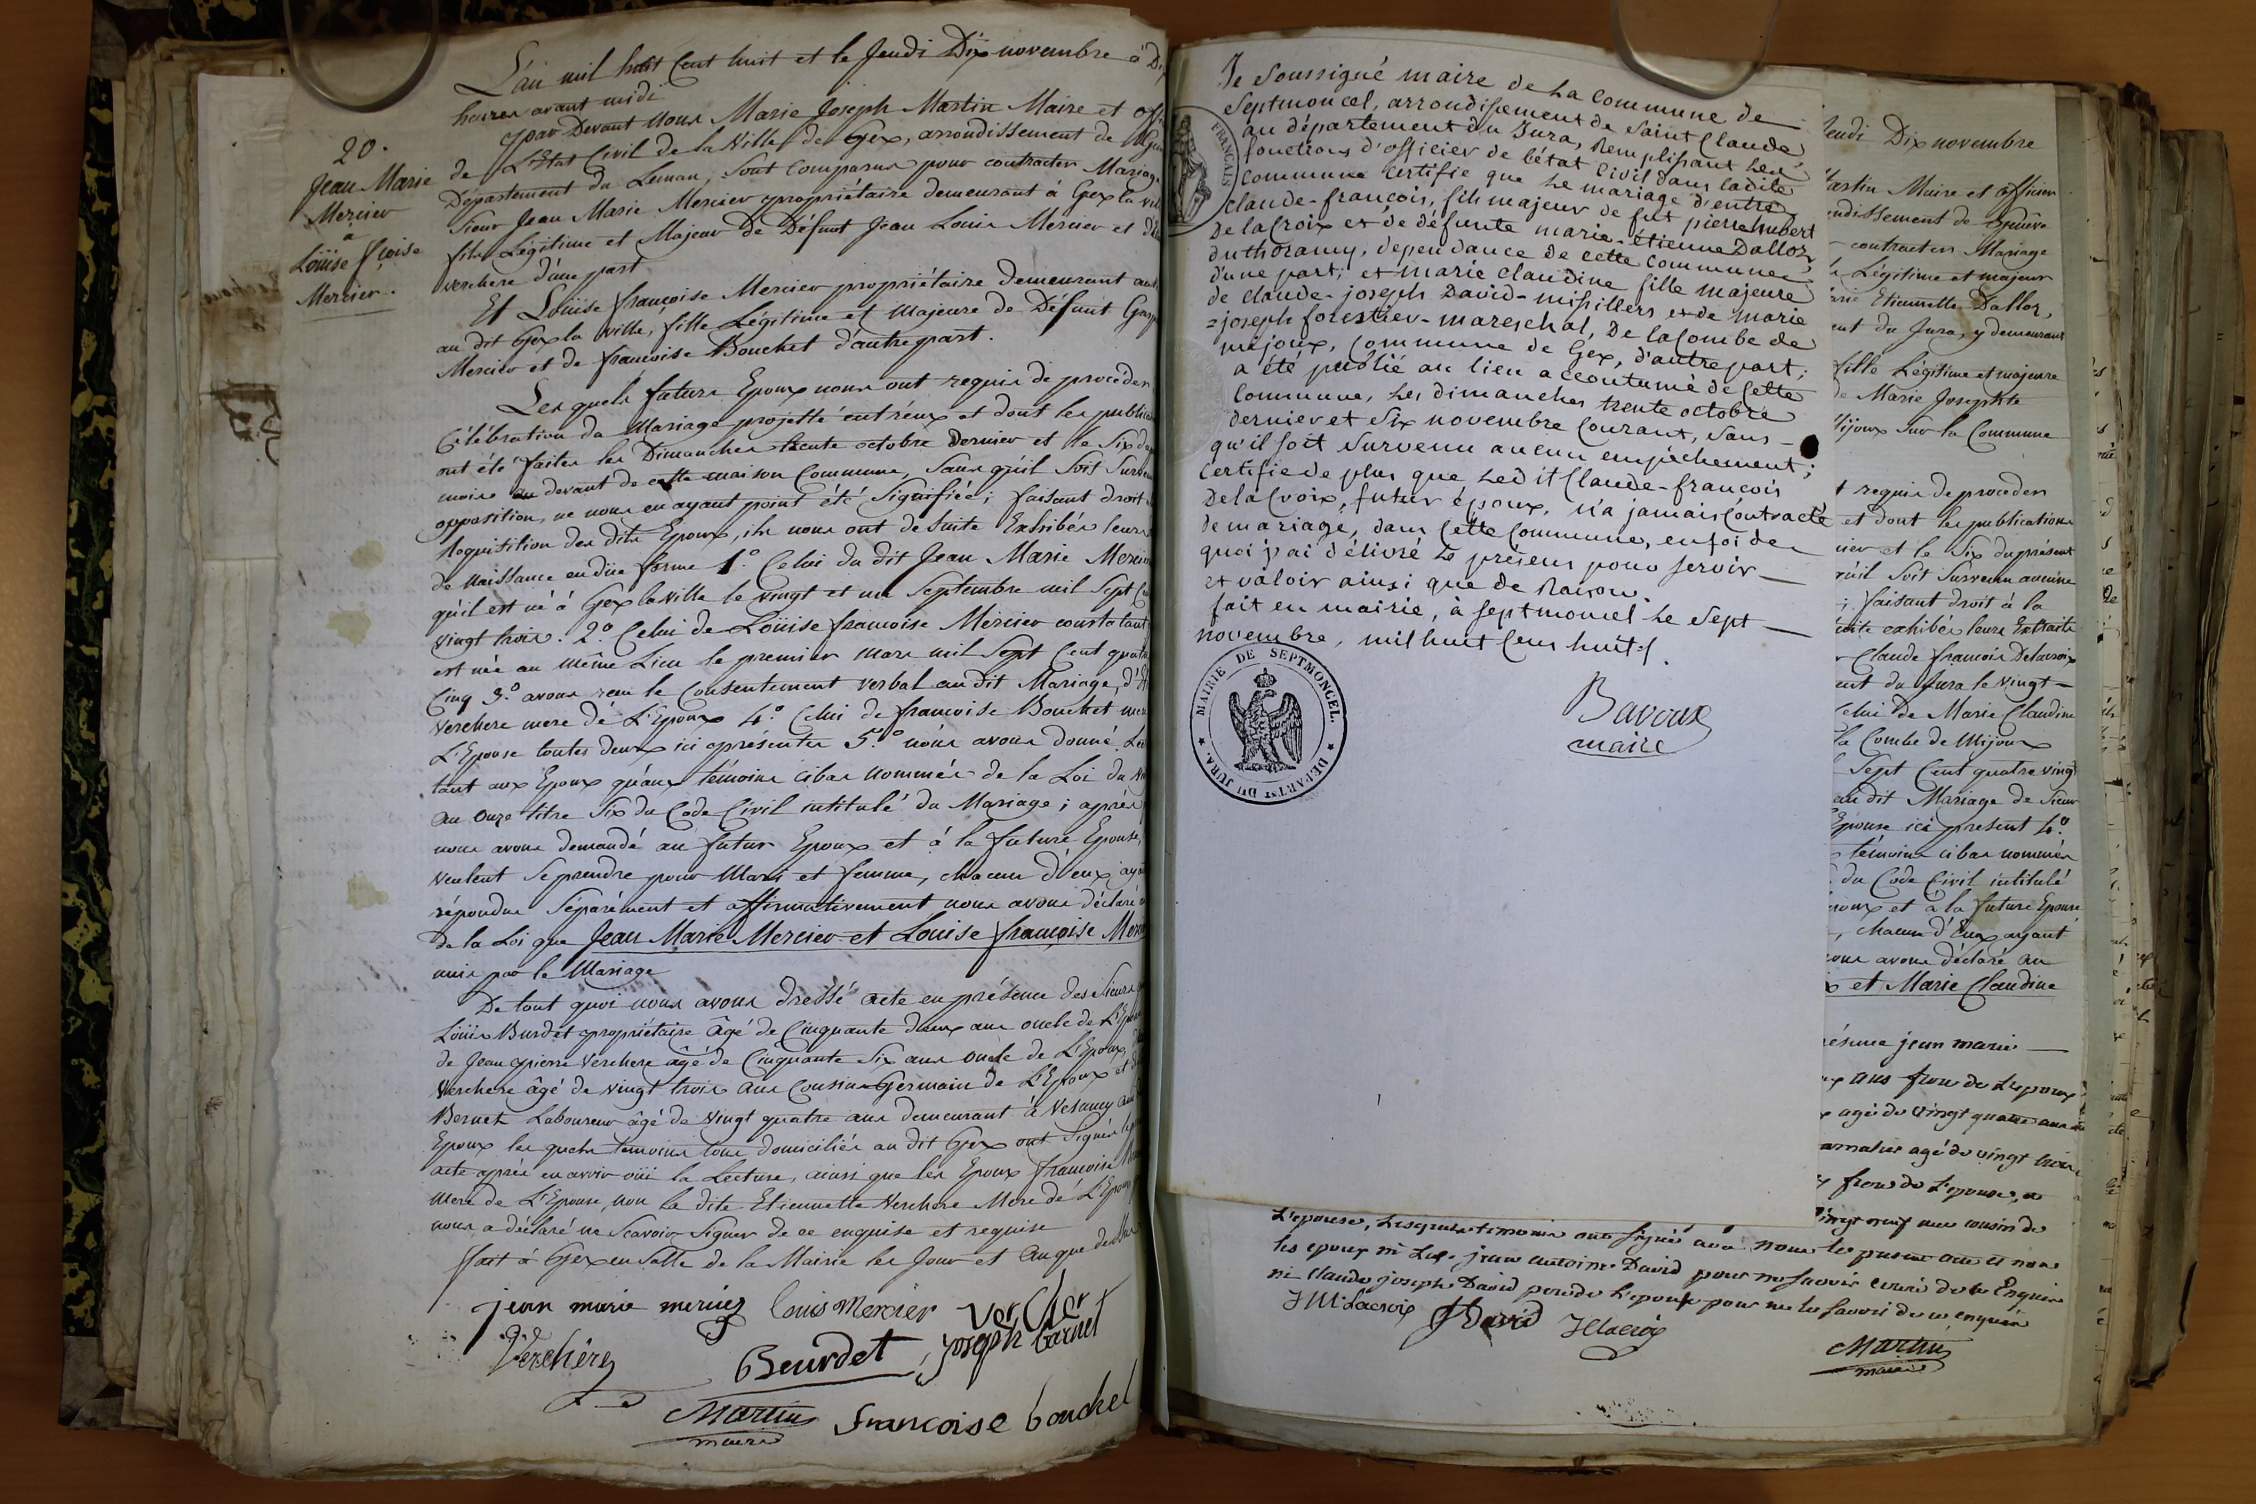 L'an mil huit Cent huit et le Jeudi Dix novembre à
heures avant midi
par Devant nous Marie Joseph Martin Maire et
de L'Etat Civil de la Ville de Gex, arrondissement de
Département du Leman, Sont Comparus pour contracter Mariage
Sieur Jean Marie Mercier propriétaire demeurant à Gex la
fils Légitime et Majeur de Défunt Jean Louis Mercier et
verchere d'une part
20.
Jean Marie
Mercier
à
Loüise fçoise
Mercier.
Et Loüise françoise Mercier propriétaire demeurant
au dit Gex la ville, fille Légitime et Majeure de Défunt
Mercier et de françoise Bouchet d'autre part.
Les quels futurs Epoux nous ont requis de procéder
Célébration du Mariage projetté entr'eux et dont les
ont été faites les Dimanches trente octobre dernier et le Six
mois au devant de cette maison Commune, Sans qu'il Soit
opposition, ne nous en ayant point été Signifiée; faisant droit
Requisition des dits Epoux, ils nous ont de Suite Exhibés leurs
de Naissance en düe forme 1.° Celui du dit Jean Marie
qu'il est né à Gex la ville le vingt et un Septembre mil Sept
vingt trois. 2.° Celui de Loüise françoise Mercier constatant
est née au même Lieu le premier mars mil Sept Cent
Cinq 3.° avons reçu le Consentement verbal au dit Mariage,
Verchere mere de L'Epoux 4.° Celui de françoise Bouchet
L'Epouse toutes deux ici présentes 5.° nous avons donné
tant aux Epoux qu'aux témoins cibas nommés de la Loi du
au onze titre Six du Code Civil intitulé du Mariage; après
nous avons demandé au futur Epoux et à la future Epouse,
veulent Se prendre pour Mari et femme, chacun d'eux
répondu Séparément et affirmativement nous avons déclaré
de la Loi que Jean Marie Mercier et Louise françoise
unis par le Mariage
De tout quoi nous avons dressé acte en présence des Sieurs
Loüis Burdet propriétaire âgé de Cinquante deux ans oncle de
de Jean pierre Verchere âgé de Cinquante Six ans oncle de L'Epoux,
Verchere âgé de vingt trois ans Cousin Germain de L'Epoux et
Bernet Laboureur âgé de vingt quatre ans demeurant à Vesancy
Epoux les quels temoins tous domiciliés au dit Gex ont Signés
acte après en avoir oüi la Lecture, ainsi que les Epoux françoise
mere de L'Epouse, non la dite Etiennette Verchere Mere de
nous a déclaré ne Scavoir Signer de ce enquise et requise
fait à Gex en Salle de la Mairie les Jour et an que
jean marie mercier louis mercier VerCher
Verchère Beurdet joseph barnet
Martin françoise bouchet
maire
Je soussigné maire de la commune de
Septmoncel, arrondissement de saint Claude,
au département du Jura, remplissant les
fonctions d'officier de l'état Civil dans ladite
commune certifie que le mariage d'entre
claude-françois, fils majeur de fut pierre hubert
De la croix et de défunte marie-étienne Dalloz
duthoramy, dependance de cette commune
d'une part; et marie claudine fille majeure
de claude-joseph David-missillers et de marie
=joseph forestier-mareschal, De la Combe de
mijoux, commune de Gex, d'autre part;
a été publié au lieu accoutumé de Cette
Commune, les dimanches trente octobre
dernier et six novembre Courant, sans
qu'il soit survenu aucun empêchement;
certifie de plus que ledit Claude-françois
De la Croix, futur époux, n'a jamais Contracté
de mariage, dans Cette Commune, en foi de
quoi j'ai délivré le présens pour servir
et valoir ainsi que de raison.
fait en mairie, à septmoncel le sept
novembre, mil huit Cens huit.
Bavoux
maire
FRANÇAIS
MAIRIE DE SEPTMONCEL.
DEPART.T DU JURA.
Jeudi Dix novembre
Martin Maire et officier
contracter Mariage
Légitime et majeur
Etiennette Dalloz,
du Jura, y demeurant
fille Légitime et majeure
de Marie Josephte
Mijoux sur la Commune
requis de procéder
et dont les publications
et le Six du présent
qu'il Soit Survenu aucune
faisant droit à la
exhibés leurs Extraits
Claude françois Delacroix
du Jura le vingt
Celui de Marie Claudine
la Combe de Mijoux
Sept Cent quatre vingt
au dit Mariage de Sieur
Epouse ici présent 4.°
témoins cibas nommés
du Code Civil intitulé
et à la future Epouse
, chacun d'Eux ayant
nous avons déclaré au
et Marie Claudine
jean marie
ans frere de L'epoux
agé de vingt quatre ans
agé de vingt trois
frere de L'epouse, et
vingt neuf ans cousin de
L'epouse, Lesquels temoins ont signé avec nous le present acte et non
les epoux ni Le jean antoine David pour ne savoir ecrire de ce Enquis
ni claude joseph David pere de l'epouse pour ne le savoir de ce enquis
J M: Lacroix J David Jelacroix
Martin
maire